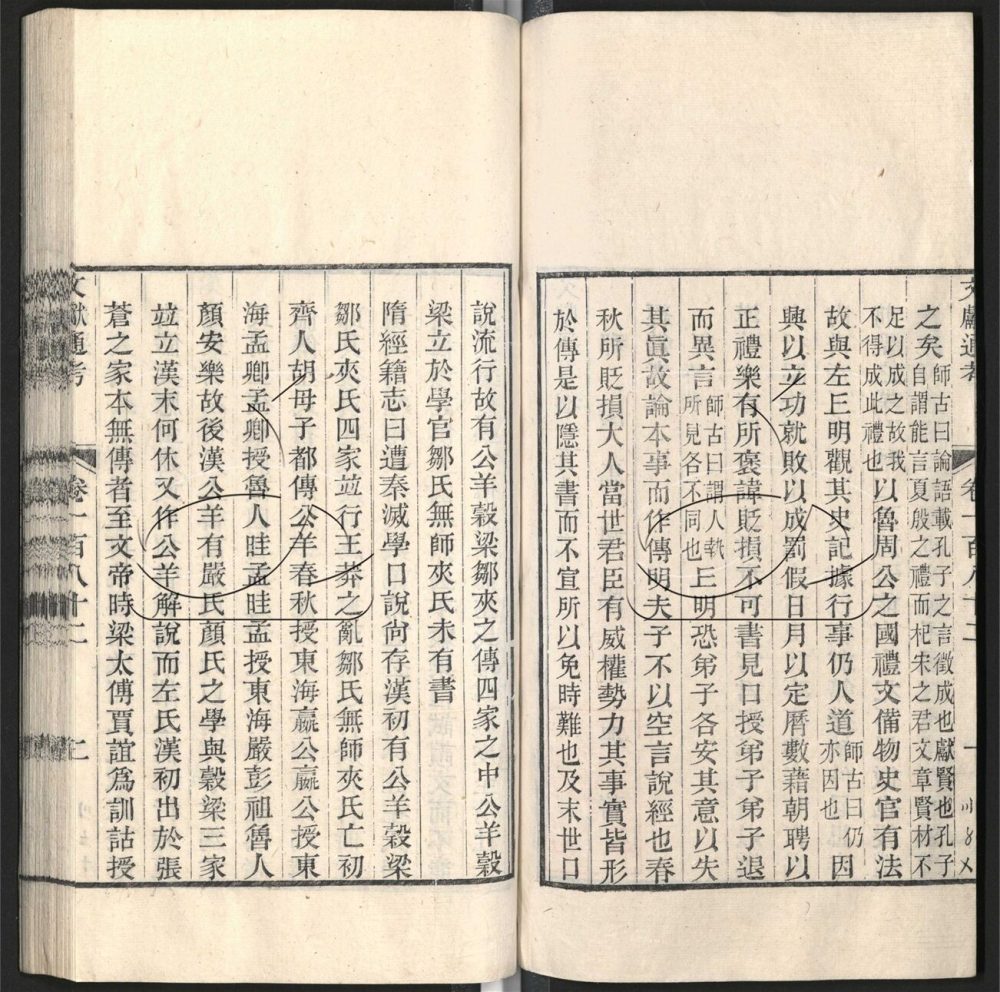 文獻通考 卷一百八十二
之矣師古曰論語載孔子之言徵成也獻賢也孔子自謂能言夏殷之禮而杞宋之君文章賢材不
足以成之故我不得成此禮也以魯周公之國禮文備物史官有法
故與左丘明觀其史記據行事仍人道師古曰仍亦因也因
興以立功就敗以成罰假日月以定曆數藉朝聘以
正禮樂有所褒諱貶損不可書見口授弟子弟子退
而異言師古曰謂人執所見各不同也丘明恐弟子各安其意以失
其眞故論本事而作傳明夫子不以空言說經也春
秋所貶損大人當世君臣有威權勢力其事實皆形
於傳是以隱其書而不宣所以免時難也及末世口
說流行故有公羊穀梁鄒夾之傳四家之中公羊穀
梁立於學官鄒氏無師夾氏未有書
隋經籍志曰遭秦滅學口說尙存漢初有公羊穀梁
鄒氏夾氏四家竝行王莽之亂鄒氏無師夾氏亡初
齊人胡母子都傳公羊春秋授東海嬴公嬴公授東
海孟卿孟卿授魯人眭孟眭孟授東海嚴彭祖魯人
顏安樂故後漢公羊有嚴氏顏氏之學與穀梁三家
竝立漢末何休又作公羊解說而左氏漢初出於張
蒼之家本無傳者至文帝時梁太傅賈誼爲訓詁授
文獻通考 卷一百八十二